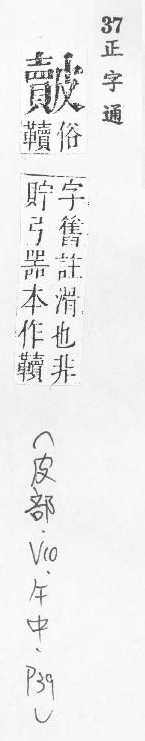 37正字通
皾
俗
韇
字舊註滑也非
貯弓器本作韇
(皮部.V10.午中.P39)